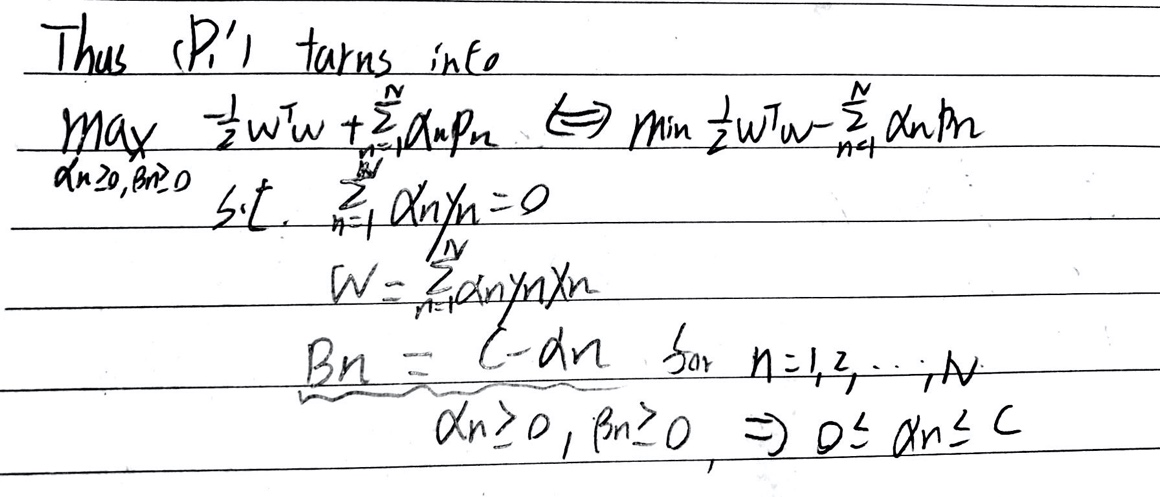 Thus (P₁') turns into
max -½wᵀw + Σ αnρn ⟺ min ½wᵀw - Σ αnρn
αn≥0, βn≥0
s.t. Σ_{n=1}^{N} αnyn = 0
W = Σ_{n=1}^{N} αnynxn
βn = C-αn for n=1,2,...,N
αn≥0, βn≥0, ⇒ 0≤ αn≤ C